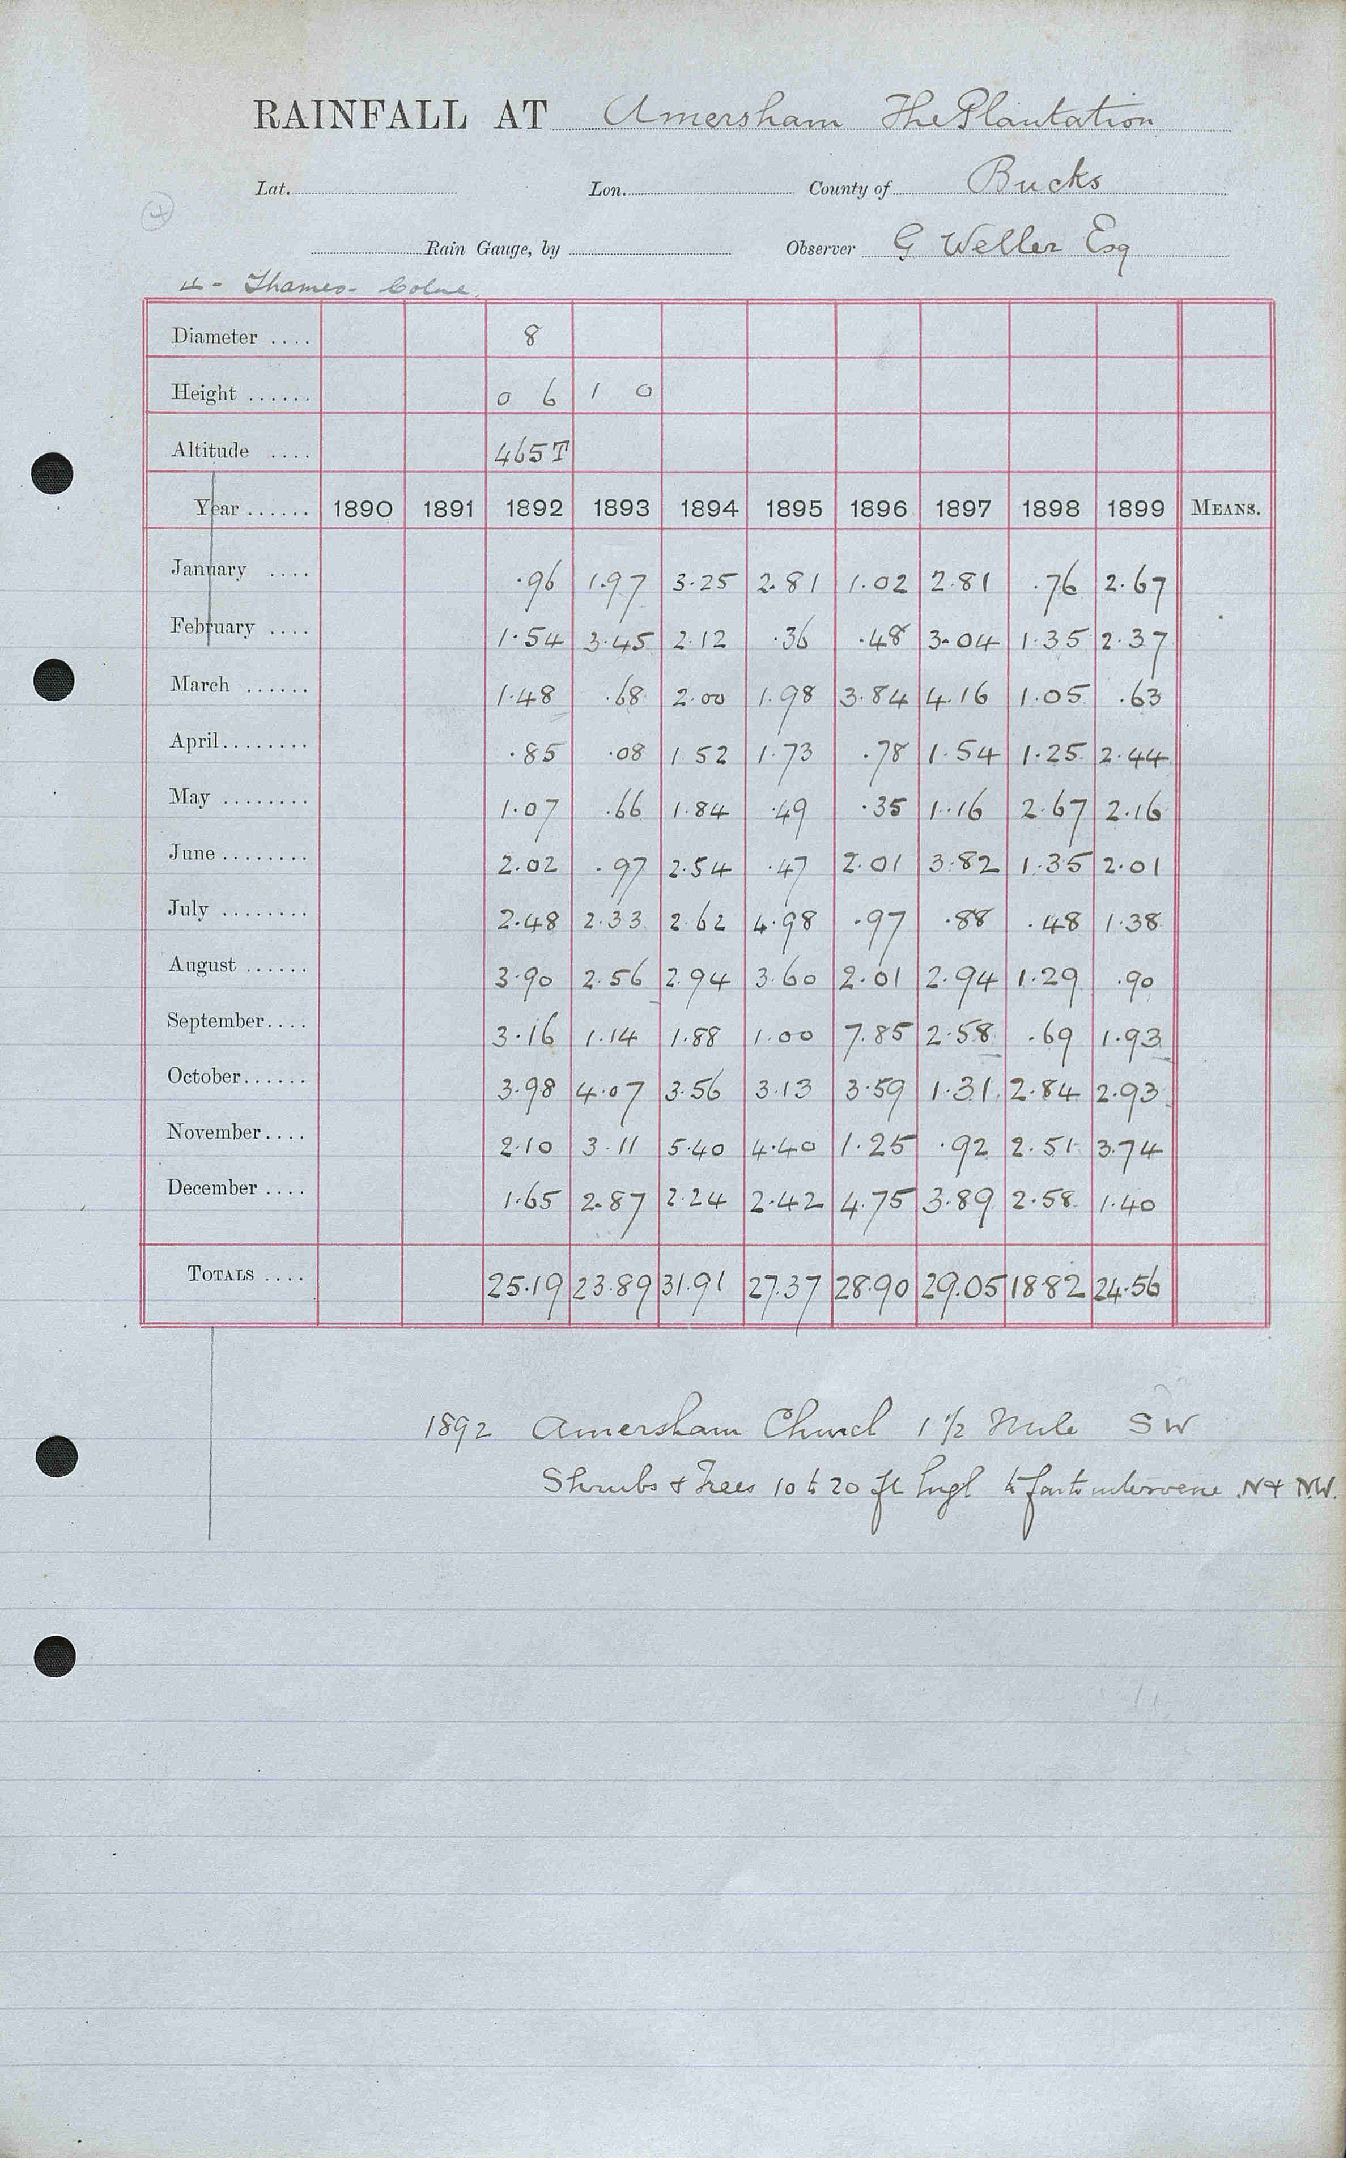 RAINFALL AT Amersham The Plantation
Lat. Lon. County of Bucks
Rain Gauge, by Observer G Weller Esq
Thames - Colne
Diameter .... 8
Height ...... 0 6 1 0
Altitude .... 465T
Year ...... 1890 1891 1892 1893 1894 1895 1896 1897 1898 1899 MEANS.
January .... .96 1.97 3.25 2.81 1.02 2.81 .76 2.67
February .... 1.54 3.45 2.12 .36 .48 3.04 1.35 2.37
March ...... 1.48 .68 2.00 1.98 3.84 4.16 1.05 .63
April........ .85 .08 1.52 1.73 .78 1.54 1.25 2.44
May ........ 1.07 .66 1.84 .49 .35 1.16 2.67 2.16
June........ 2.02 .97 2.54 .47 2.01 3.82 1.35 2.01
July ........ 2.48 2.33 2.62 4.98 .97 .88 .48 1.38
August ...... 3.90 2.56 2.94 3.60 2.01 2.94 1.29 .90
September.... 3.16 1.14 1.88 1.00 7.85 2.58 .69 1.93
October...... 3.98 4.07 3.56 3.13 3.59 1.31 2.84 2.93
November.... 2.10 3.11 5.40 4.40 1.25 .92 2.51 3.74
December .... 1.65 2.87 2.24 2.42 4.75 3.89 2.58 1.40
TOTALS .... 25.19 23.89 31.91 27.37 28.90 29.05 18.82 24.56
1892 Amersham Church 1 1/2 Mile SW
Shrubs & Trees 10 to 20 ft high intervene N & NW.